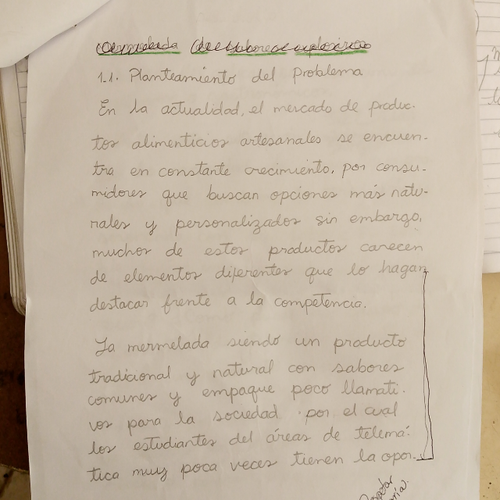 Mermelada de sabores explosivos
1.1. Planteamiento del Problema
En la actualidad, el mercado de produc-
tos alimenticios artesanales se encuen-
tra en constante crecimiento, por consu-
midores que buscan opciones más natu-
rales y personalizados sin embargo,
muchos de estos productos carecen
de elementos diferentes que lo hagan
destacar frente a la competencia.
La mermelada siendo un producto
tradicional y natural con sabores
comunes y empaque poco llamati-
vos para la sociedad por el cual
los estudiantes del áreas de telemá-
tica muy poca veces tienen la opor-